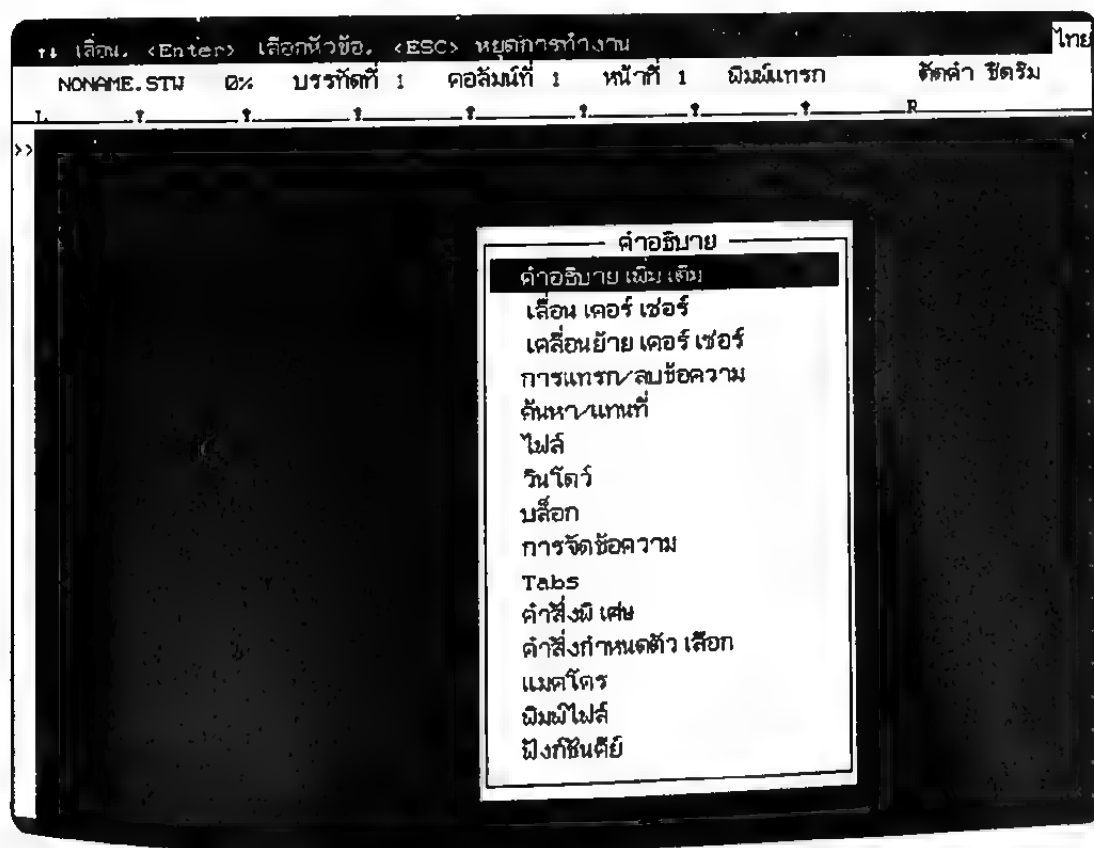 ↑↓ เลื่อน. <Enter> เลือกหัวข้อ. <ESC> หยุดการทำงาน ไทย
NONAME.STW 0% บรรทัดที่ 1 คอลัมน์ที่ 1 หน้าที่ 1 พิมพ์แทรก ตัดคำ ชิดริม
L R
>> <
คำอธิบาย
คำอธิบายเพิ่มเติม
เลื่อนเคอร์เซอร์
เคลื่อนย้ายเคอร์เซอร์
การแทรก/ลบข้อความ
ค้นหา/แทนที่
ไฟล์
วินโดว์
บล็อก
การจัดข้อความ
Tabs
คำสั่งพิเศษ
คำสั่งกำหนดตัวเลือก
แมคโคร
พิมพ์ไฟล์
ฟังก์ชันคีย์